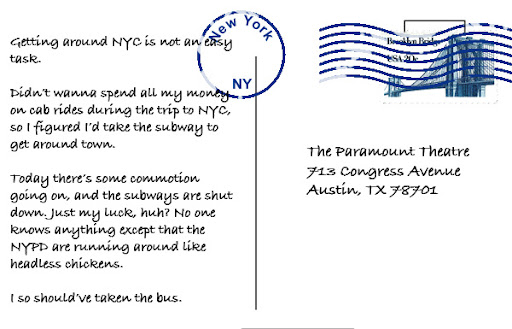 Getting around NYC is not an easy
task.
Didn't wanna spend all my money
on cab rides during the trip to NYC,
so I figured I'd take the subway to
get around town.
Today there's some commotion
going on, and the subways are shut
down. Just my luck, huh? No one
knows anything except that the
NYPD are running around like
headless chickens.
I so should've taken the bus.
New York
NY
Brooklyn Bridge
USA 20c
The Paramount Theatre
713 Congress Avenue
Austin, TX 78701